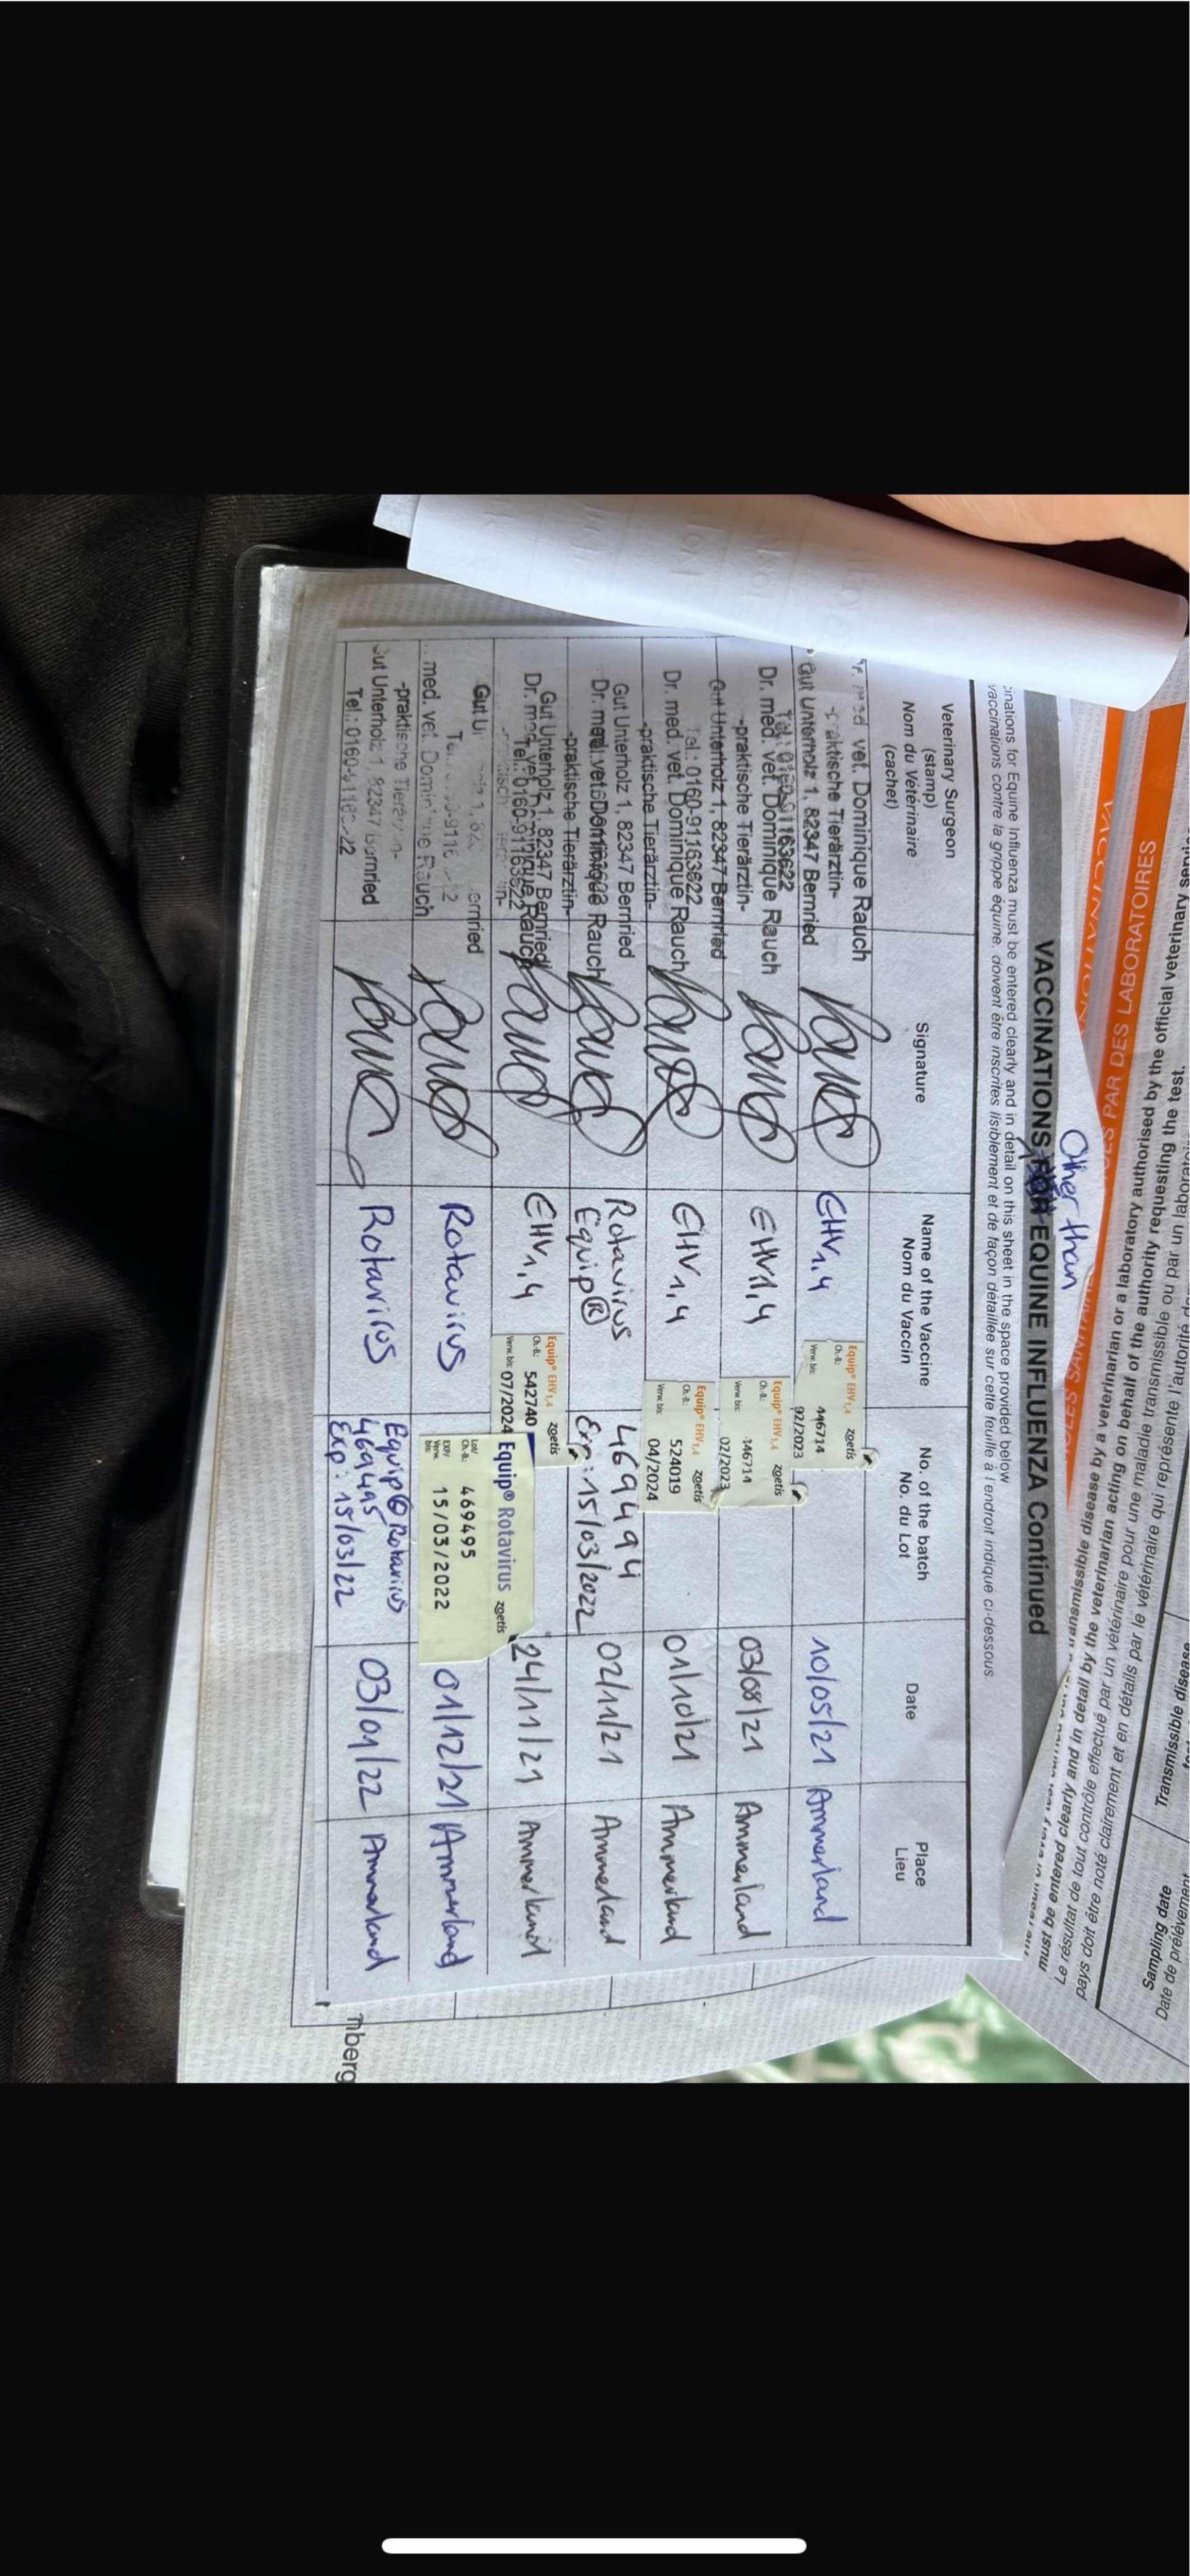 Other than
VACCINATIONS FOR EQUINE INFLUENZA Continued
cinations for Equine Influenza must be entered clearly and in detail on this sheet in the space provided below
vaccinations contre la grippe équine, doivent être inscrites lisiblement et de façon détaillée sur cette feuille à l'endroit indiqué ci-dessous.
Veterinary Surgeon
(stamp)
Nom du Vétérinaire
(cachet)
Signature
Name of the Vaccine
Nom du Vaccin
No. of the batch
No. du Lot
Date
Place
Lieu
vet. Dominique Rauch
-praktische Tierärztin-
Gut Unterholz 1, 82347 Bernried
Tel.: 0160-91163622
EHV1,4
Equip® EHV1,4 zoetis
Ch.-B.: 446714
Verw. bis: 02/2023
10/05/21
Ammerland
Dr. med. vet. Dominique Rauch
-praktische Tierärztin-
Gut Unterholz 1, 82347 Bernried
Tel.: 0160-91163622
EHV1,4
Equip® EHV1,4 zoetis
Ch.-B.: 446714
Verw. bis: 02/2023
03/08/21
Ammerland
Dr. med. vet. Dominique Rauch
-praktische Tierärztin-
Gut Unterholz 1, 82347 Bernried
EHV1,4
Equip® EHV1,4 zoetis
Ch.-B.: 524019
Verw. bis: 04/2024
01/10/21
Ammerland
Dr. med. vet. Dominique Rauch
-praktische Tierärztin-
Gut Unterholz 1, 82347 Bernried
Tel.: 0160-91163622
Rotavirus
Equip®
469494
Exp.: 15/03/2022
02/11/21
Ammerland
Dr. med. vet. Dominique Rauch
EHV1,4
Equip® EHV1,4 zoetis
Ch.-B.: 542740
Verw. bis: 07/2024
24/11/21
Ammerland
Gut
med. vet. Dominique Rauch
Rotavirus
Equip® Rotavirus zoetis
Lot/
Ch.-B.: 469495
EXP/
Verw. bis: 15/03/2022
01/12/21
Ammerland
-praktische
Gut Unterholz 1, 82347 Bernried
Tel.: 0160-
Rotavirus
Equip® Rotavirus
469495
Exp: 15/03/22
03/01/22
Ammerland
mberg
PAR DES LABORATOIRES
transmissible disease by a veterinarian or a laboratory authorised by the official veterinary
must be entered clearly and in detail by the veterinarian acting on behalf of the authority requesting the test.
Le résultat de tout contrôle effectué par un vétérinaire pour une maladie transmissible ou par un
pays doit être noté clairement et en détails par le vétérinaire qui représente l'autorité
Sampling date
Date de prélèvement
Transmissible disease